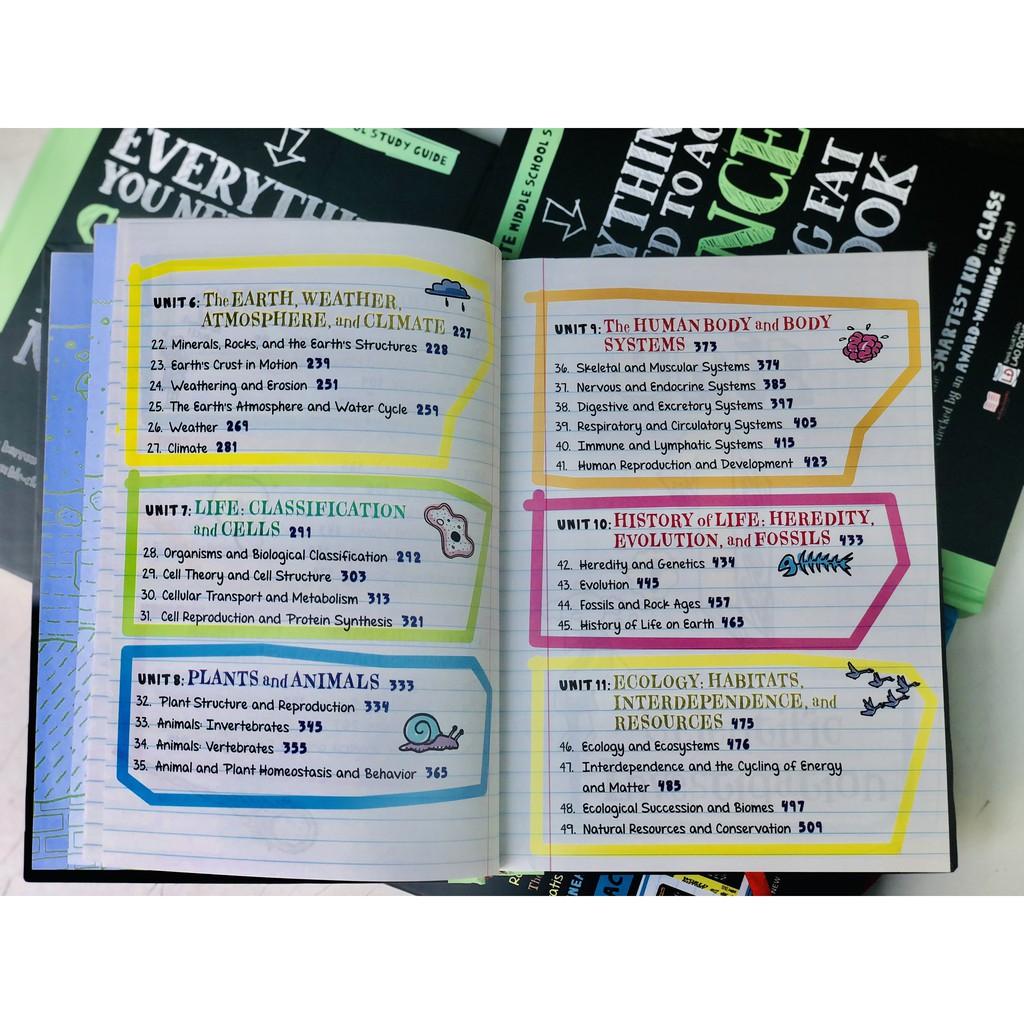 OL STUDY GUIDE
EVERYTHI
YOU NE
TE MIDDLE SCHOOL S
YTHIN
D TO AC
NCE
G FAT
OOK
SMARTEST KID in CLASS
checked by an AWARD-WINNING teacher!
UNIT 6: The EARTH, WEATHER,
ATMOSPHERE, and CLIMATE 227
22. Minerals, Rocks, and the Earth's Structures 228
23. Earth's Crust in Motion 239
24. Weathering and Erosion 251
25. The Earth's Atmosphere and Water Cycle 259
26. Weather 269
27. Climate 281
UNIT 7: LIFE: CLASSIFICATION
and CELLS 291
28. Organisms and Biological Classification 292
29. Cell Theory and Cell Structure 303
30. Cellular Transport and Metabolism 313
31. Cell Reproduction and Protein Synthesis 321
UNIT 8: PLANTS and ANIMALS 333
32. Plant Structure and Reproduction 334
33. Animals: Invertebrates 345
34. Animals: Vertebrates 355
35. Animal and Plant Homeostasis and Behavior 365
UNIT 9: The HUMAN BODY and BODY
SYSTEMS 373
36. Skeletal and Muscular Systems 374
37. Nervous and Endocrine Systems 385
38. Digestive and Excretory Systems 397
39. Respiratory and Circulatory Systems 405
40. Immune and Lymphatic Systems 415
41. Human Reproduction and Development 423
UNIT 10: HISTORY of LIFE: HEREDITY,
EVOLUTION, and FOSSILS 433
42. Heredity and Genetics 434
43. Evolution 445
44. Fossils and Rock Ages 457
45. History of Life on Earth 465
UNIT 11: ECOLOGY: HABITATS,
INTERDEPENDENCE, and
RESOURCES 475
46. Ecology and Ecosystems 476
47. Interdependence and the Cycling of Energy
and Matter 485
48. Ecological Succession and Biomes 497
49. Natural Resources and Conservation 509